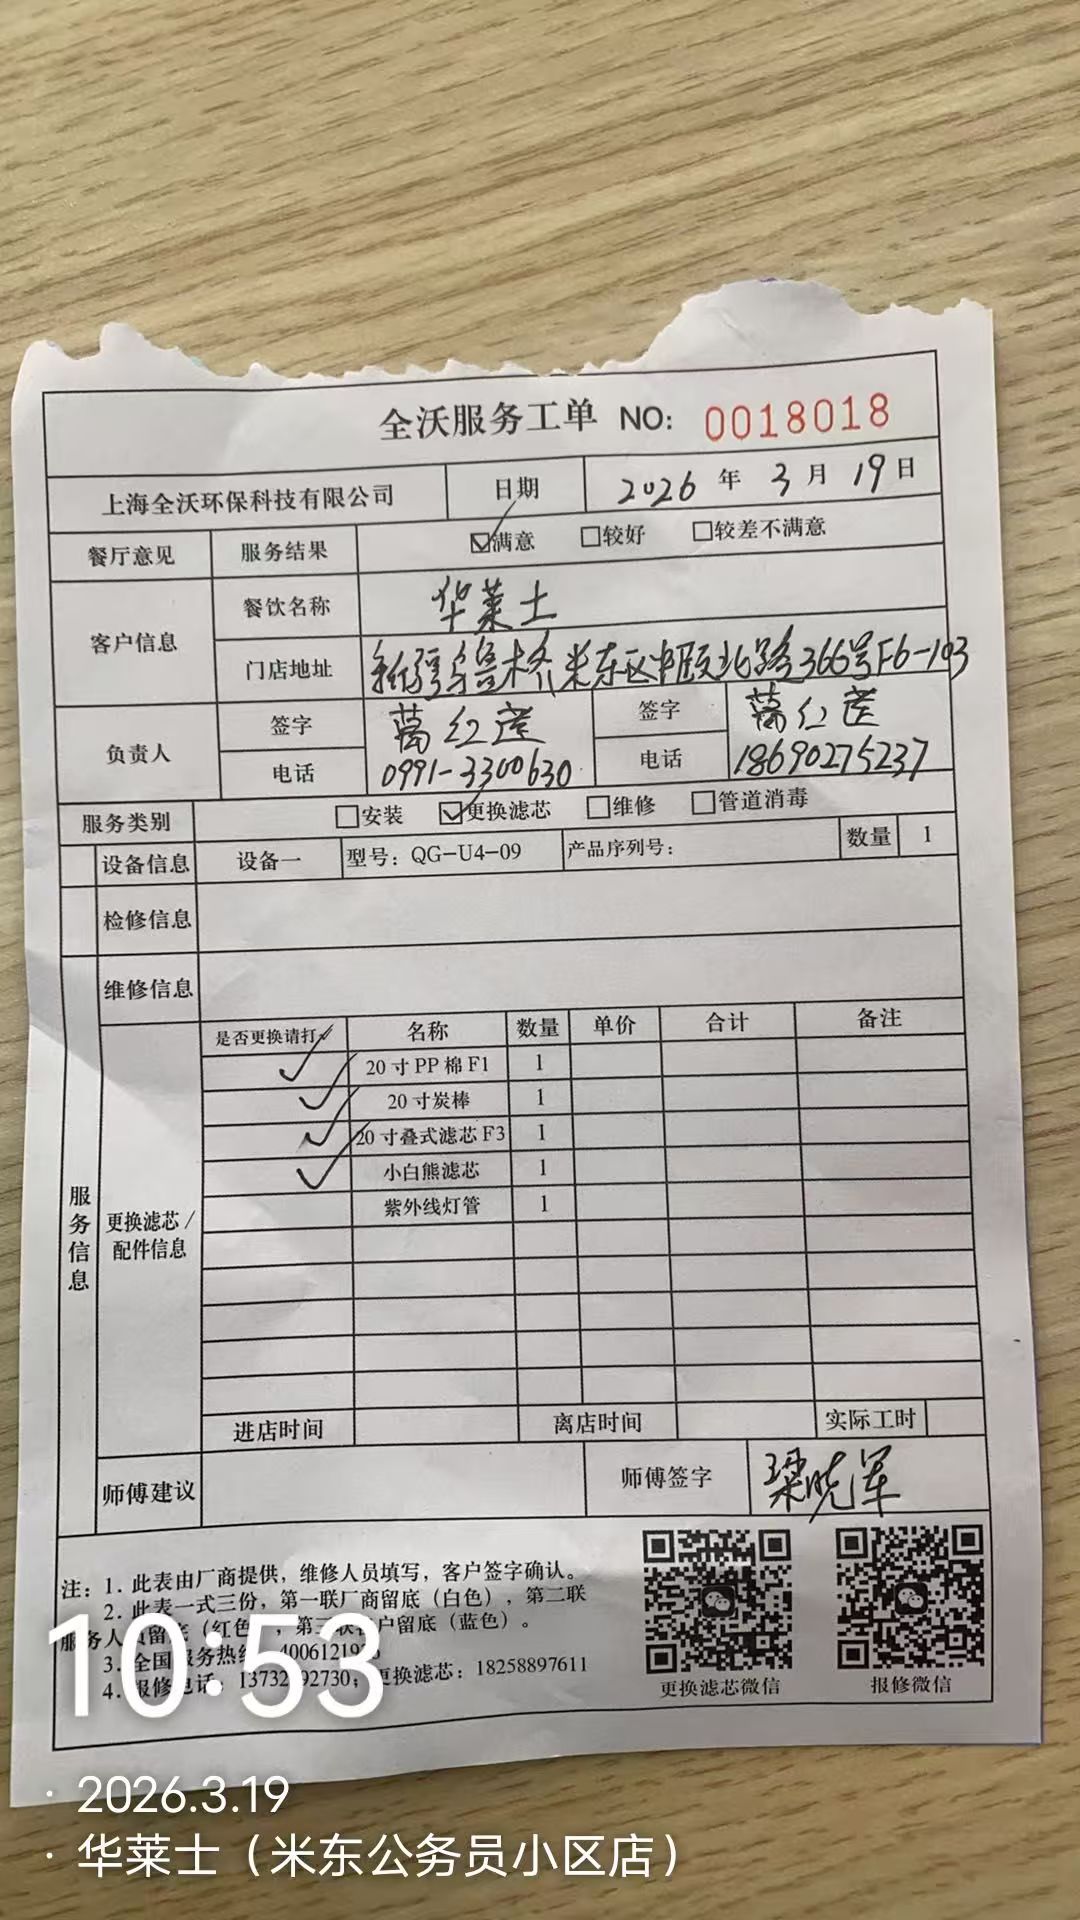 全沃服务工单 NO: 0018018
上海全沃环保科技有限公司 日期 2026 年 3 月 19 日
餐厅意见 服务结果 ☑满意 □较好 □较差不满意
客户信息 餐饮名称 华莱士
门店地址 新疆乌鲁木齐米东区中颐北路366号F6-103
负责人 签字 葛红莲 签字 葛红莲
电话 0991-3300630 电话 18690275237
服务类别 □安装 ☑更换滤芯 □维修 □管道消毒
设备信息 设备一 型号：QG-U4-09 产品序列号： 数量 1
检修信息
维修信息
服务信息
更换滤芯/
配件信息
是否更换请打✓ 名称 数量 单价 合计 备注
✓ 20寸PP棉F1 1
✓ 20寸炭棒 1
✓ 20寸叠式滤芯F3 1
✓ 小白熊滤芯 1
紫外线灯管 1
进店时间 离店时间 实际工时
师傅建议 师傅签字 梁晓军
注：1. 此表由厂商提供，维修人员填写，客户签字确认。
2. 此表一式三份，第一联厂商留底（白色），第二联
服务人员留底（红色），第三联客户留底（蓝色）。
3. 全国服务热线 4006121
4. 报修电话：13732 92730；更换滤芯：18258897611
更换滤芯微信 报修微信
10:53
· 2026.3.19
· 华莱士（米东公务员小区店）